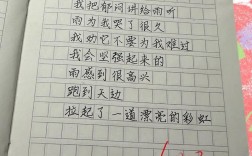 我把郁闷讲给雨听
雨为我哭了很久
我劝它不要为我难过
我会坚强起来的
雨感到很高兴
跑到天边
拉起了一道漂亮的彩虹